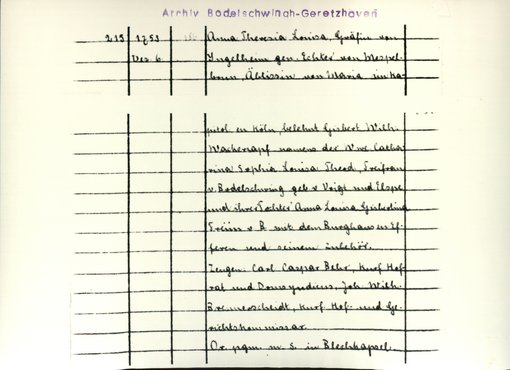 Archiv Bodelschwingh-Geretzhoven
215 1753 Anna Theresia Louisa, Gräfin von
Dez 6. Ingelheim gen. Echter von Mespel-
bronn, Äbtissin von Maria im Ka-
pitol en Köln, belehnt Gisbert Wilh.
Wackerzapf namens der Wwe Catha-
rina Sophia Louisa Theod, Freifrau
v. Bodelschwing geb v Voigt und Elspe
und ihrer Tochter Anna Louisa
Freiin v B. mit dem Burghaus en Ef-
feren und seinem Zubehör.
Zeugen: Carl Caspar Behr, Kurf Hof
rat und Domsyndicus, Joh. Wilh.
Bremerscheidt, Kurf. Hof- und Ge-
richtskommissar.
Or. pgm. m. S. in Blechkapsel.